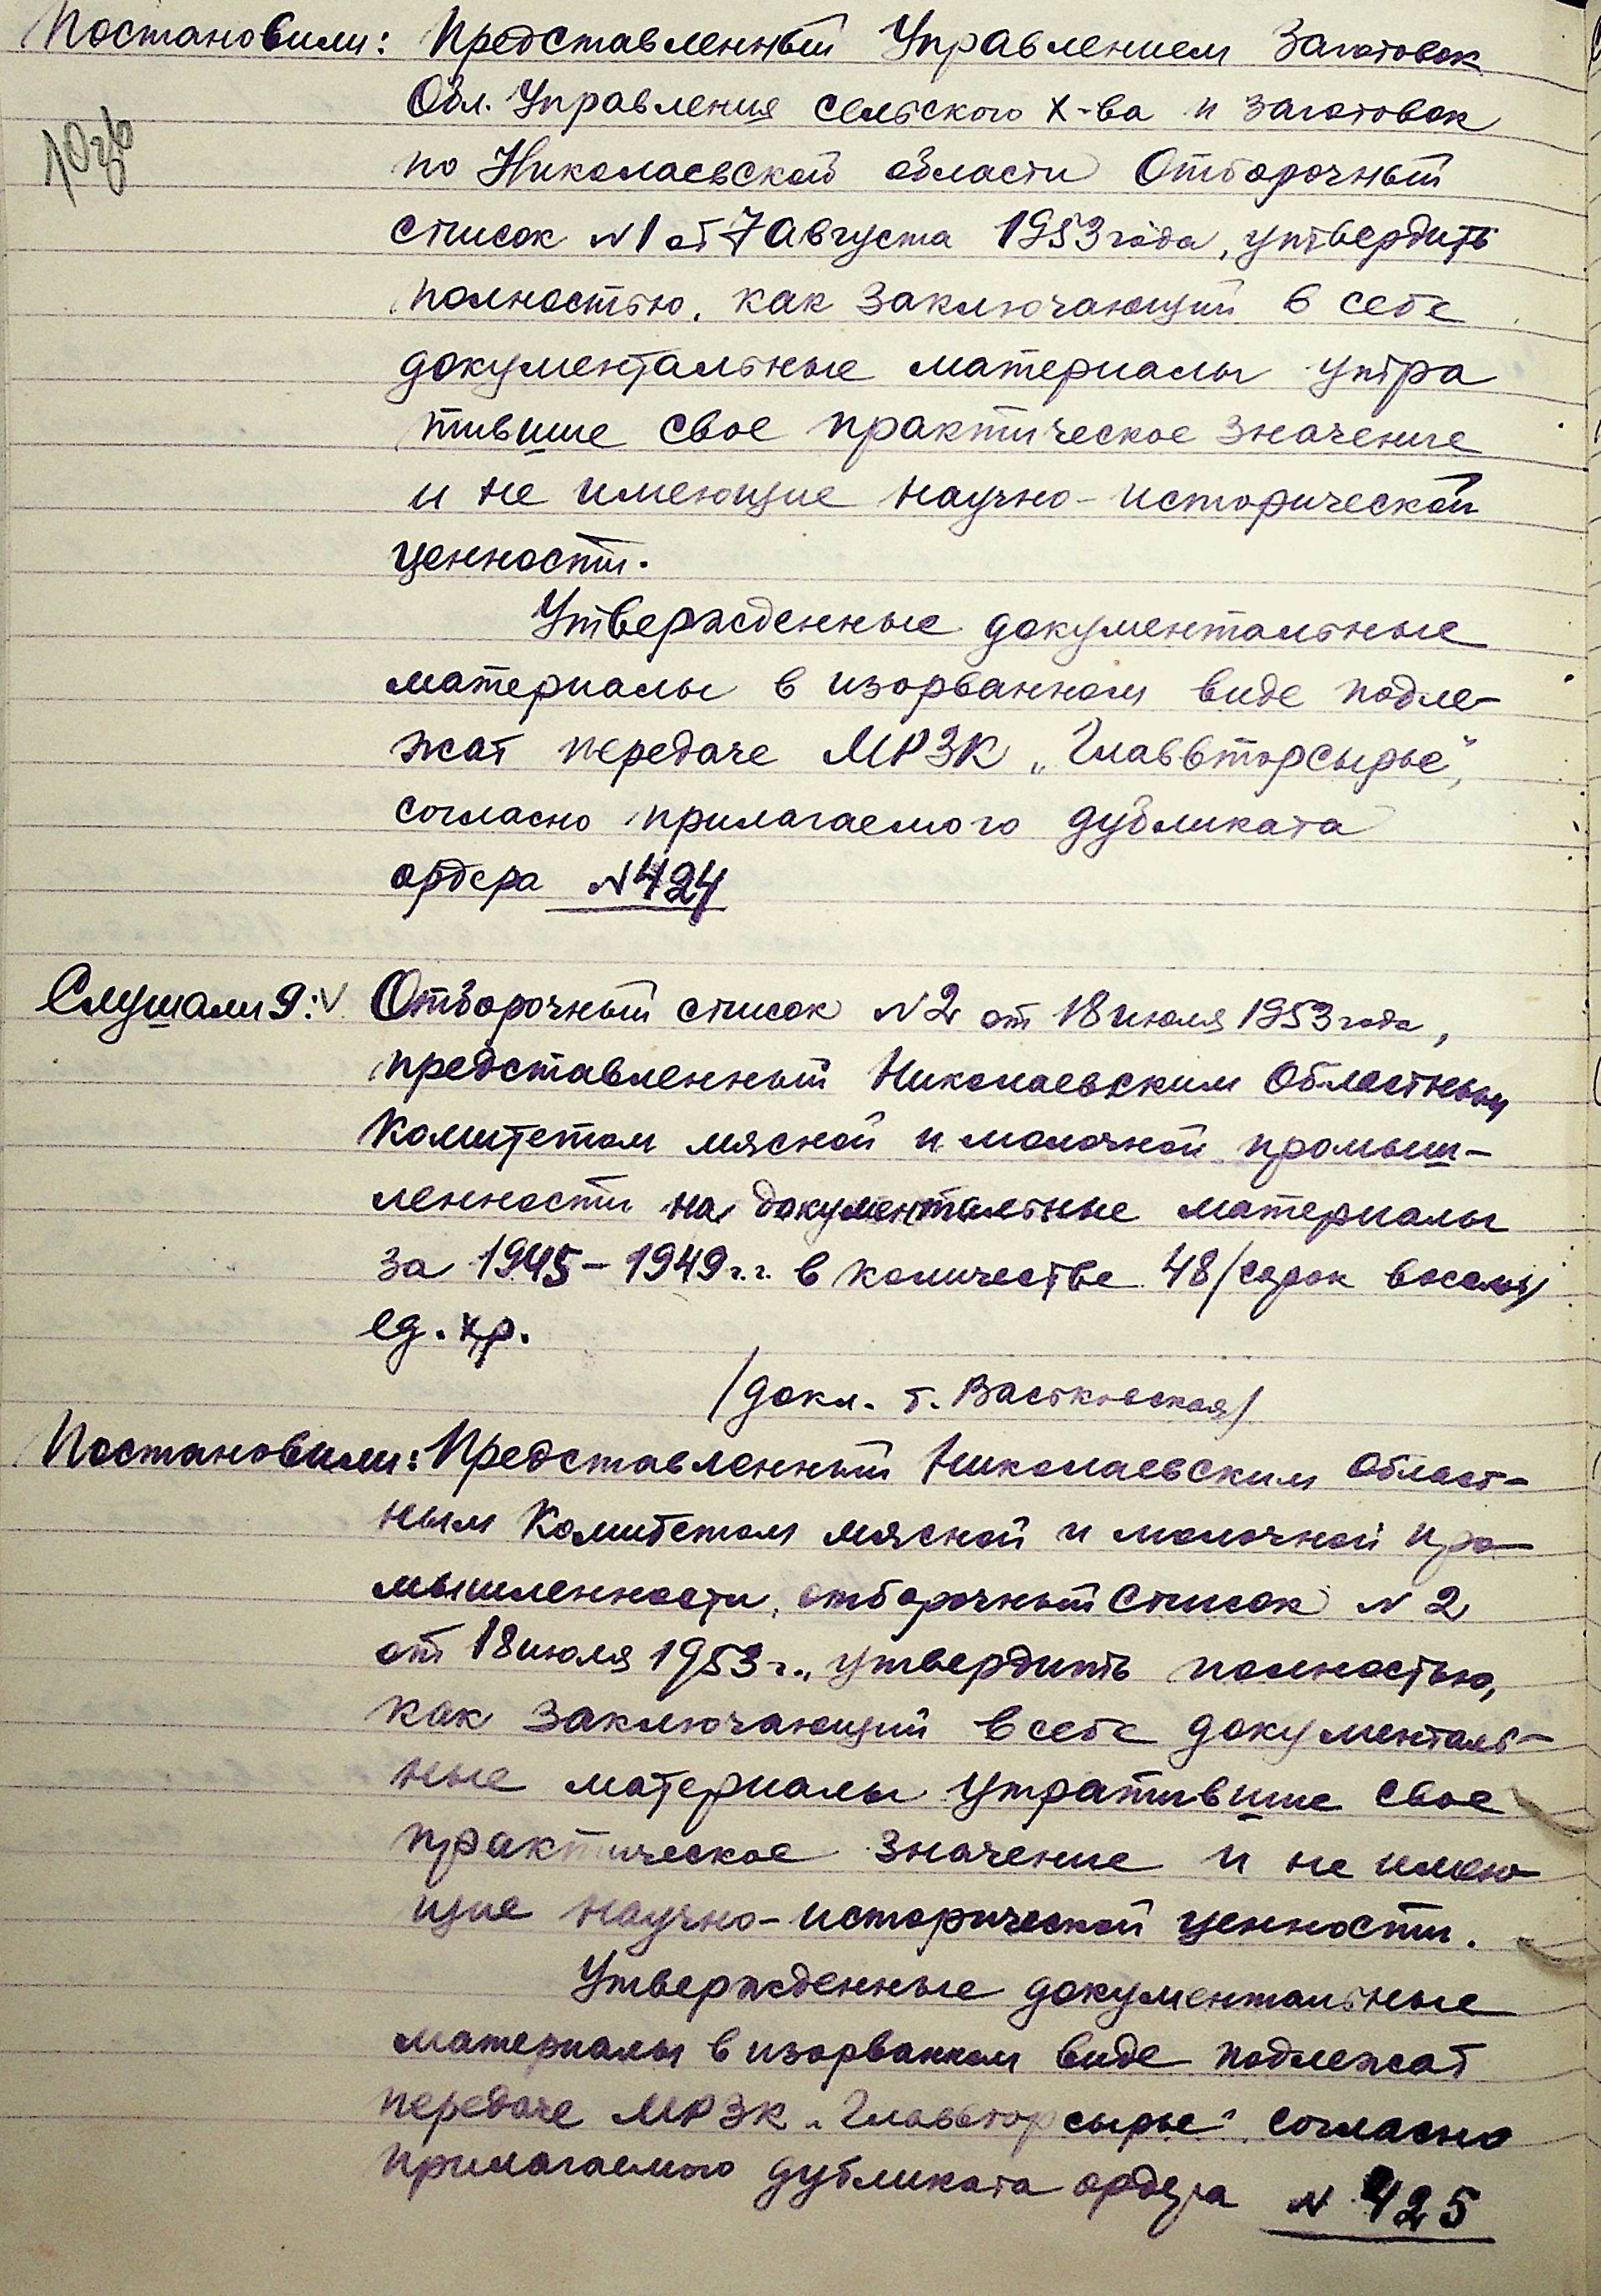 Постановили: Представленный Управлением Заготовок
Обл. Управления сельского х-ва и заготовок
по Николаевской области Отборочный
список №1 от 7 Августа 1953 года, утвердить
полностью, как заключающий в себе
документальные материалы утра
тившие свое практическое значение
и не имеющие научно-исторической
ценности.
Утвержденные документальные
материалы в изорванном виде подле-
жат передаче МРЗК „Главвторсырье",
согласно прилагаемого дубликата
ордера №424
Слушали 9: V Отборочный список №2 от 18 июля 1953 года,
представленный Николаевским Областным
Комитетом мясной и молочной промыш-
ленности на документальные материалы
за 1945-1949 г.г. в количестве 48 /сорок восемь/
ед. хр.
/докл. т.
Постановили: Представленный Николаевским Област-
ным Комитетом мясной и молочной про-
мышленности, отборочный список №2
от 18 июля 1953 г., утвердить полностью,
как заключающий в себе документаль-
ные материалы утратившие свое
практическое значение и не имею-
щие научно-исторической ценности.
Утвержденные документальные
материалы в изорванном виде подлежат
передаче МРЗК „Главвторсырье" согласно
прилагаемого дубликата ордера № 425